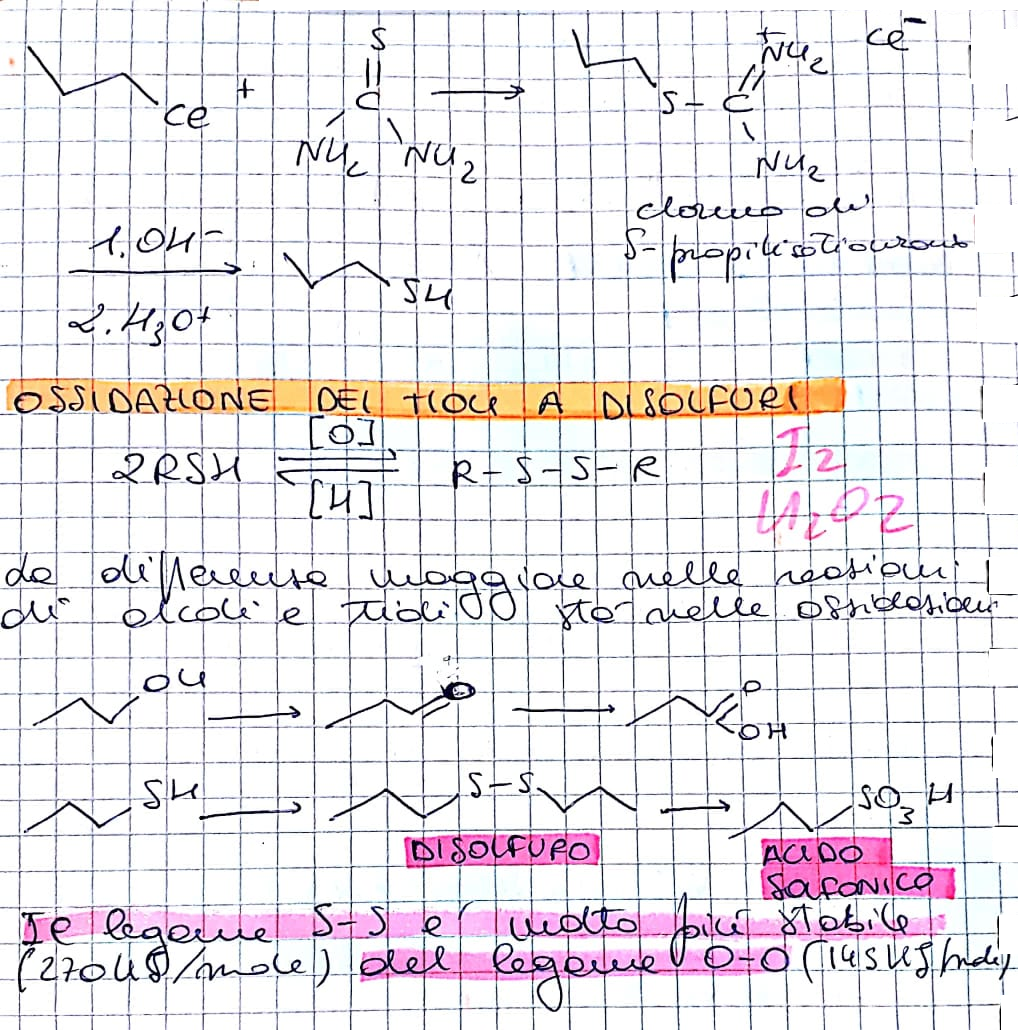 S
Cl + C → S-C NH2 + Cl-
NH2 NH2 NH2
cloruro di
S-propilisotiouronio
1. OH-
SH
2. H3O+
OSSIDAZIONE DEI TIOLI A DISOLFURI
[O]
2RSH ⇌ R-S-S-R I2
[H] H2O2
la differenza maggiore nelle reazioni
di alcoli e tioli sta nelle ossidazioni
OH → O → O
OH
SH → S-S → SO3H
DISOLFURO ACIDO
SOLFONICO
Il legame S-S e' molto più stabile
(270 KJ/mole) del legame O-O (145 KJ/mole)